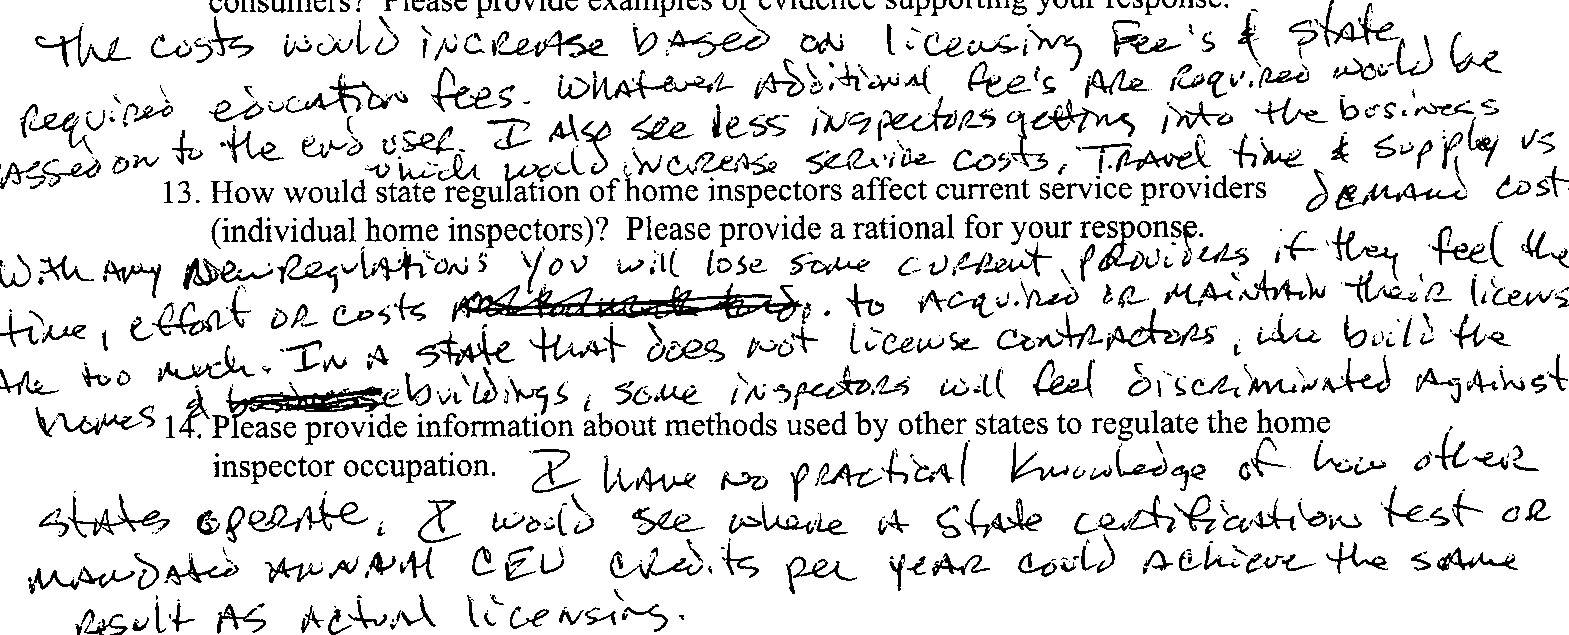 consumers? Please provide examples or evidence supporting your response.
The costs would increase based on licensing Fee's & state
Required education fees. Whatever additional fee's are required would be
assed on to the end user. I also see less inspectors getting into the business
which would increase service costs, Travel time & supply vs
13. How would state regulation of home inspectors affect current service providers demand cost
(individual home inspectors)? Please provide a rational for your response.
With any New Regulations you will lose some current providers if they feel the
time, effort or costs to acquired or maintain their licens
Are too much. In a state that does not license contractors, who build the
homes & buildings, some inspectors will feel discriminated against
14. Please provide information about methods used by other states to regulate the home
inspector occupation. I have no practical knowledge of how other
states operate. I would see where a state certification test or
mandated annual CEU credits per year could achieve the same
result as actual licensing.